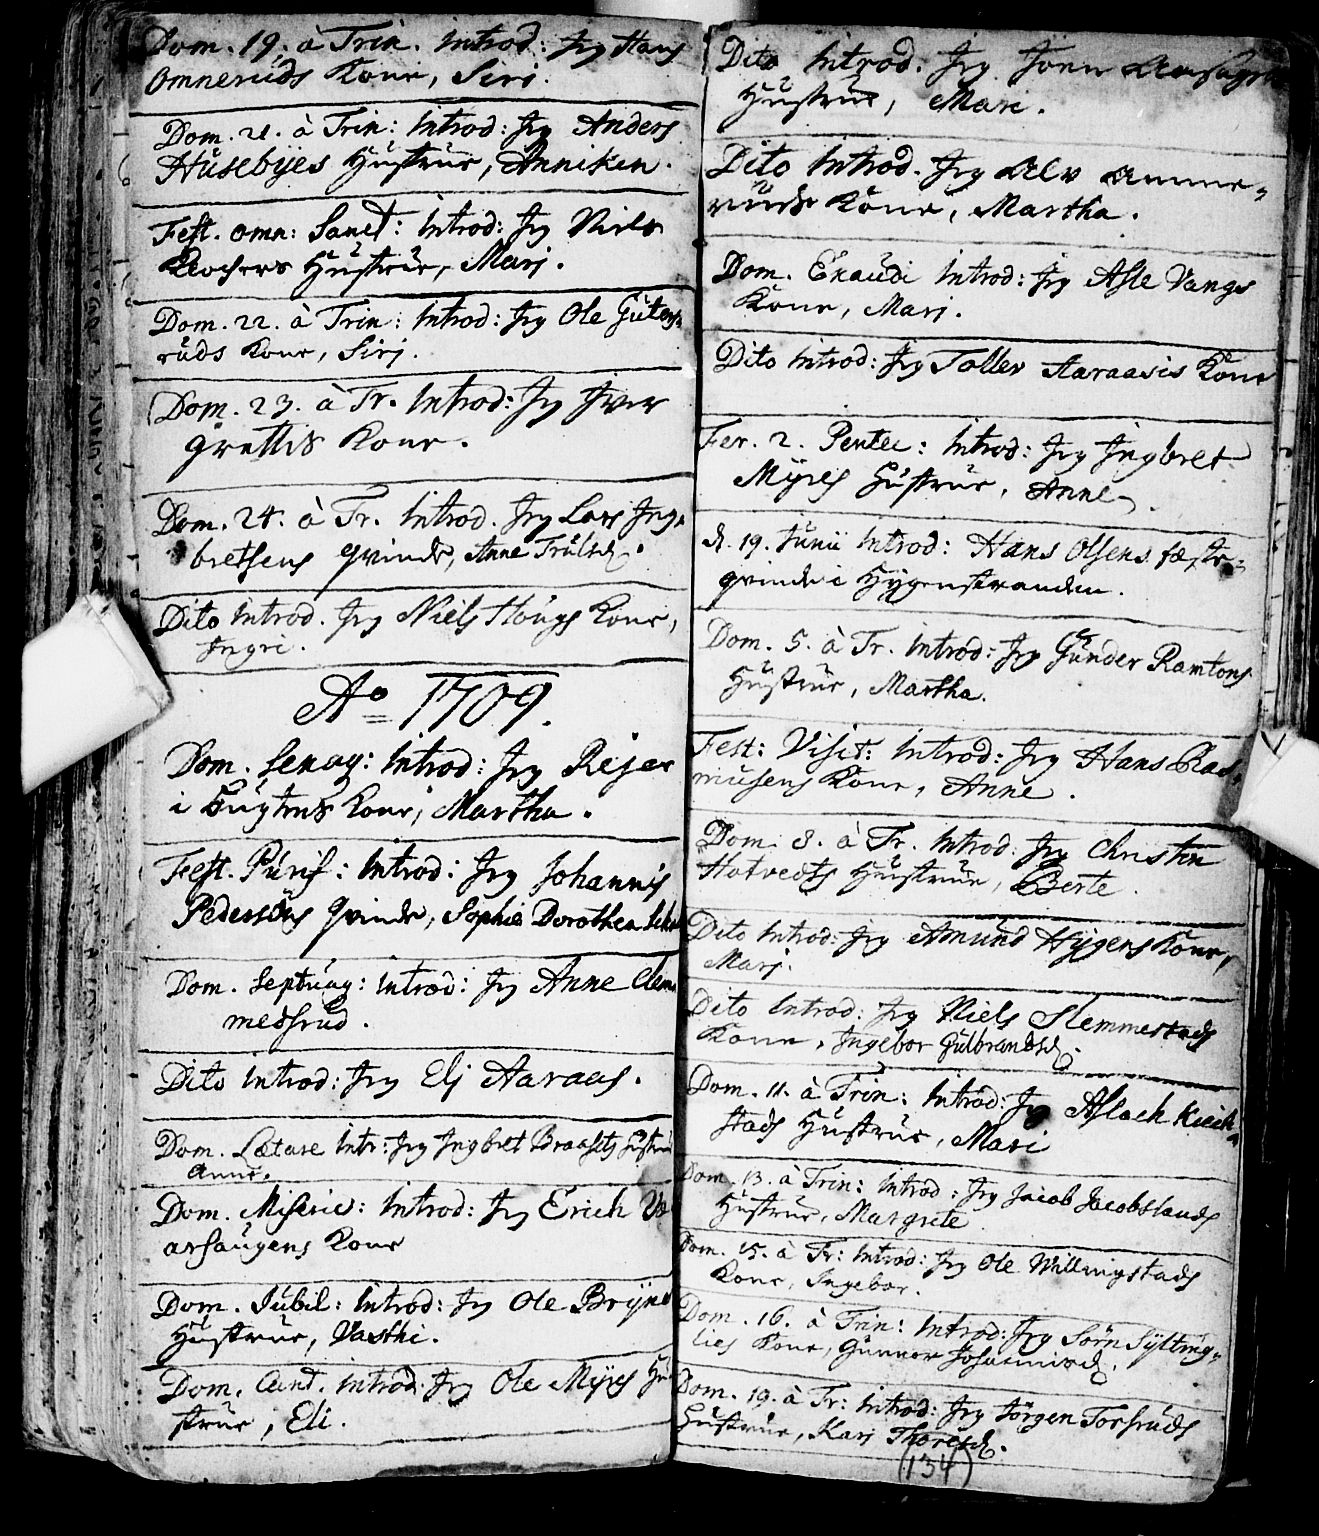 Dom. 19. à Trin. Introd: Jeg Hans
Omneruds Kone, Siri.
Dom. 21. à Trin: Introd: Jeg Anders
Husebyes Hustrue, Anniken.
Fest. Omn: Sanct: Introd: Jeg Niels
Hustrue, Marj.
Dom. 22. à Trin: Introd: Jeg Ole Gutens-
ruds Kone, Sirj.
Dom. 23. à Tr. Introd: Jeg Iver
Grettis Kone.
Dom. 24. à Tr. Introd. Jeg Lars Ing-
bretsens Qvinde, Anne Trulsd.
Dito Introd. Jeg Niels Hougs Kone,
Ingri.
Ao 1709.
Dom. Sexag: Introd: Jeg Rejer
i Kone, Martha.
Fest. Purif: Introd: Jeg Johannis
Pedersøns Qvinde, Sophie Dorothea
Dom. Septuag: Introd: Jeg Anne Clem-
medsrud.
Dito Introd: Jeg Elj Aaraas.
Dom. Lætare Intr: Jeg Ingbret Braasets Hustrue
Anne.
Dom. Miseric: Introd: Jeg Erich
arhaugens Kone
Dom. Jubil: Introd: Jeg Ole Bryns
Hustrue, Vasthi.
Dom. Cant. Introd: Jeg Ole Myres Hu-
strue, Eli.
Dito Introd. Jeg Joen
Hustrue, Mari.
Dito Introd. Jeg Alv Amme-
ruds Kone, Martha.
Dom. Exaudi Introd: Jeg Asle Vangs
Kone, Marj.
Dito Introd: Jeg Toller Aaraasis Kone
Fer. 2. Pentec: Introd: Jeg Ingbret
Myres Hustrue, Anne
d. 19. Junii Introd: Hans Olsens fæste-
qvinde i Hygenstranden.
Dom. 5. à Tr. Introd: Jeg Gunder Ramtons
Hustrue, Martha.
Fest: Visit: Introd: Jeg Hans Ras-
musens Kone, Anne.
Dom. 8. à Tr. Introd: Jeg Christen
Hotvedts Hustrue, Berte.
Dito Introd: Jeg Amund Hygens Kone,
Marj.
Dito Introd: Jeg Niels Slemmestads
Kone, Ingebor Gulbrandsd.
Dom. 11. à Trin: Introd: Jeg Aslach Kiech-
stads Hustrue, Mari
Dom. 13. à Trin: Introd: Jeg Jacob Jacobslands
Hustrue, Margrete.
Dom. 15. à Tr: Introd: Jeg Ole Willingstads
Kone, Ingebor.
Dom. 16. à Trin: Introd: Jeg Sørn Sylting-
lies Kone, Gunnor
Dom. 19. à Tr: Introd: Jeg Jørgen Torsruds
Hustrue, Karj Thoresd.
(134)